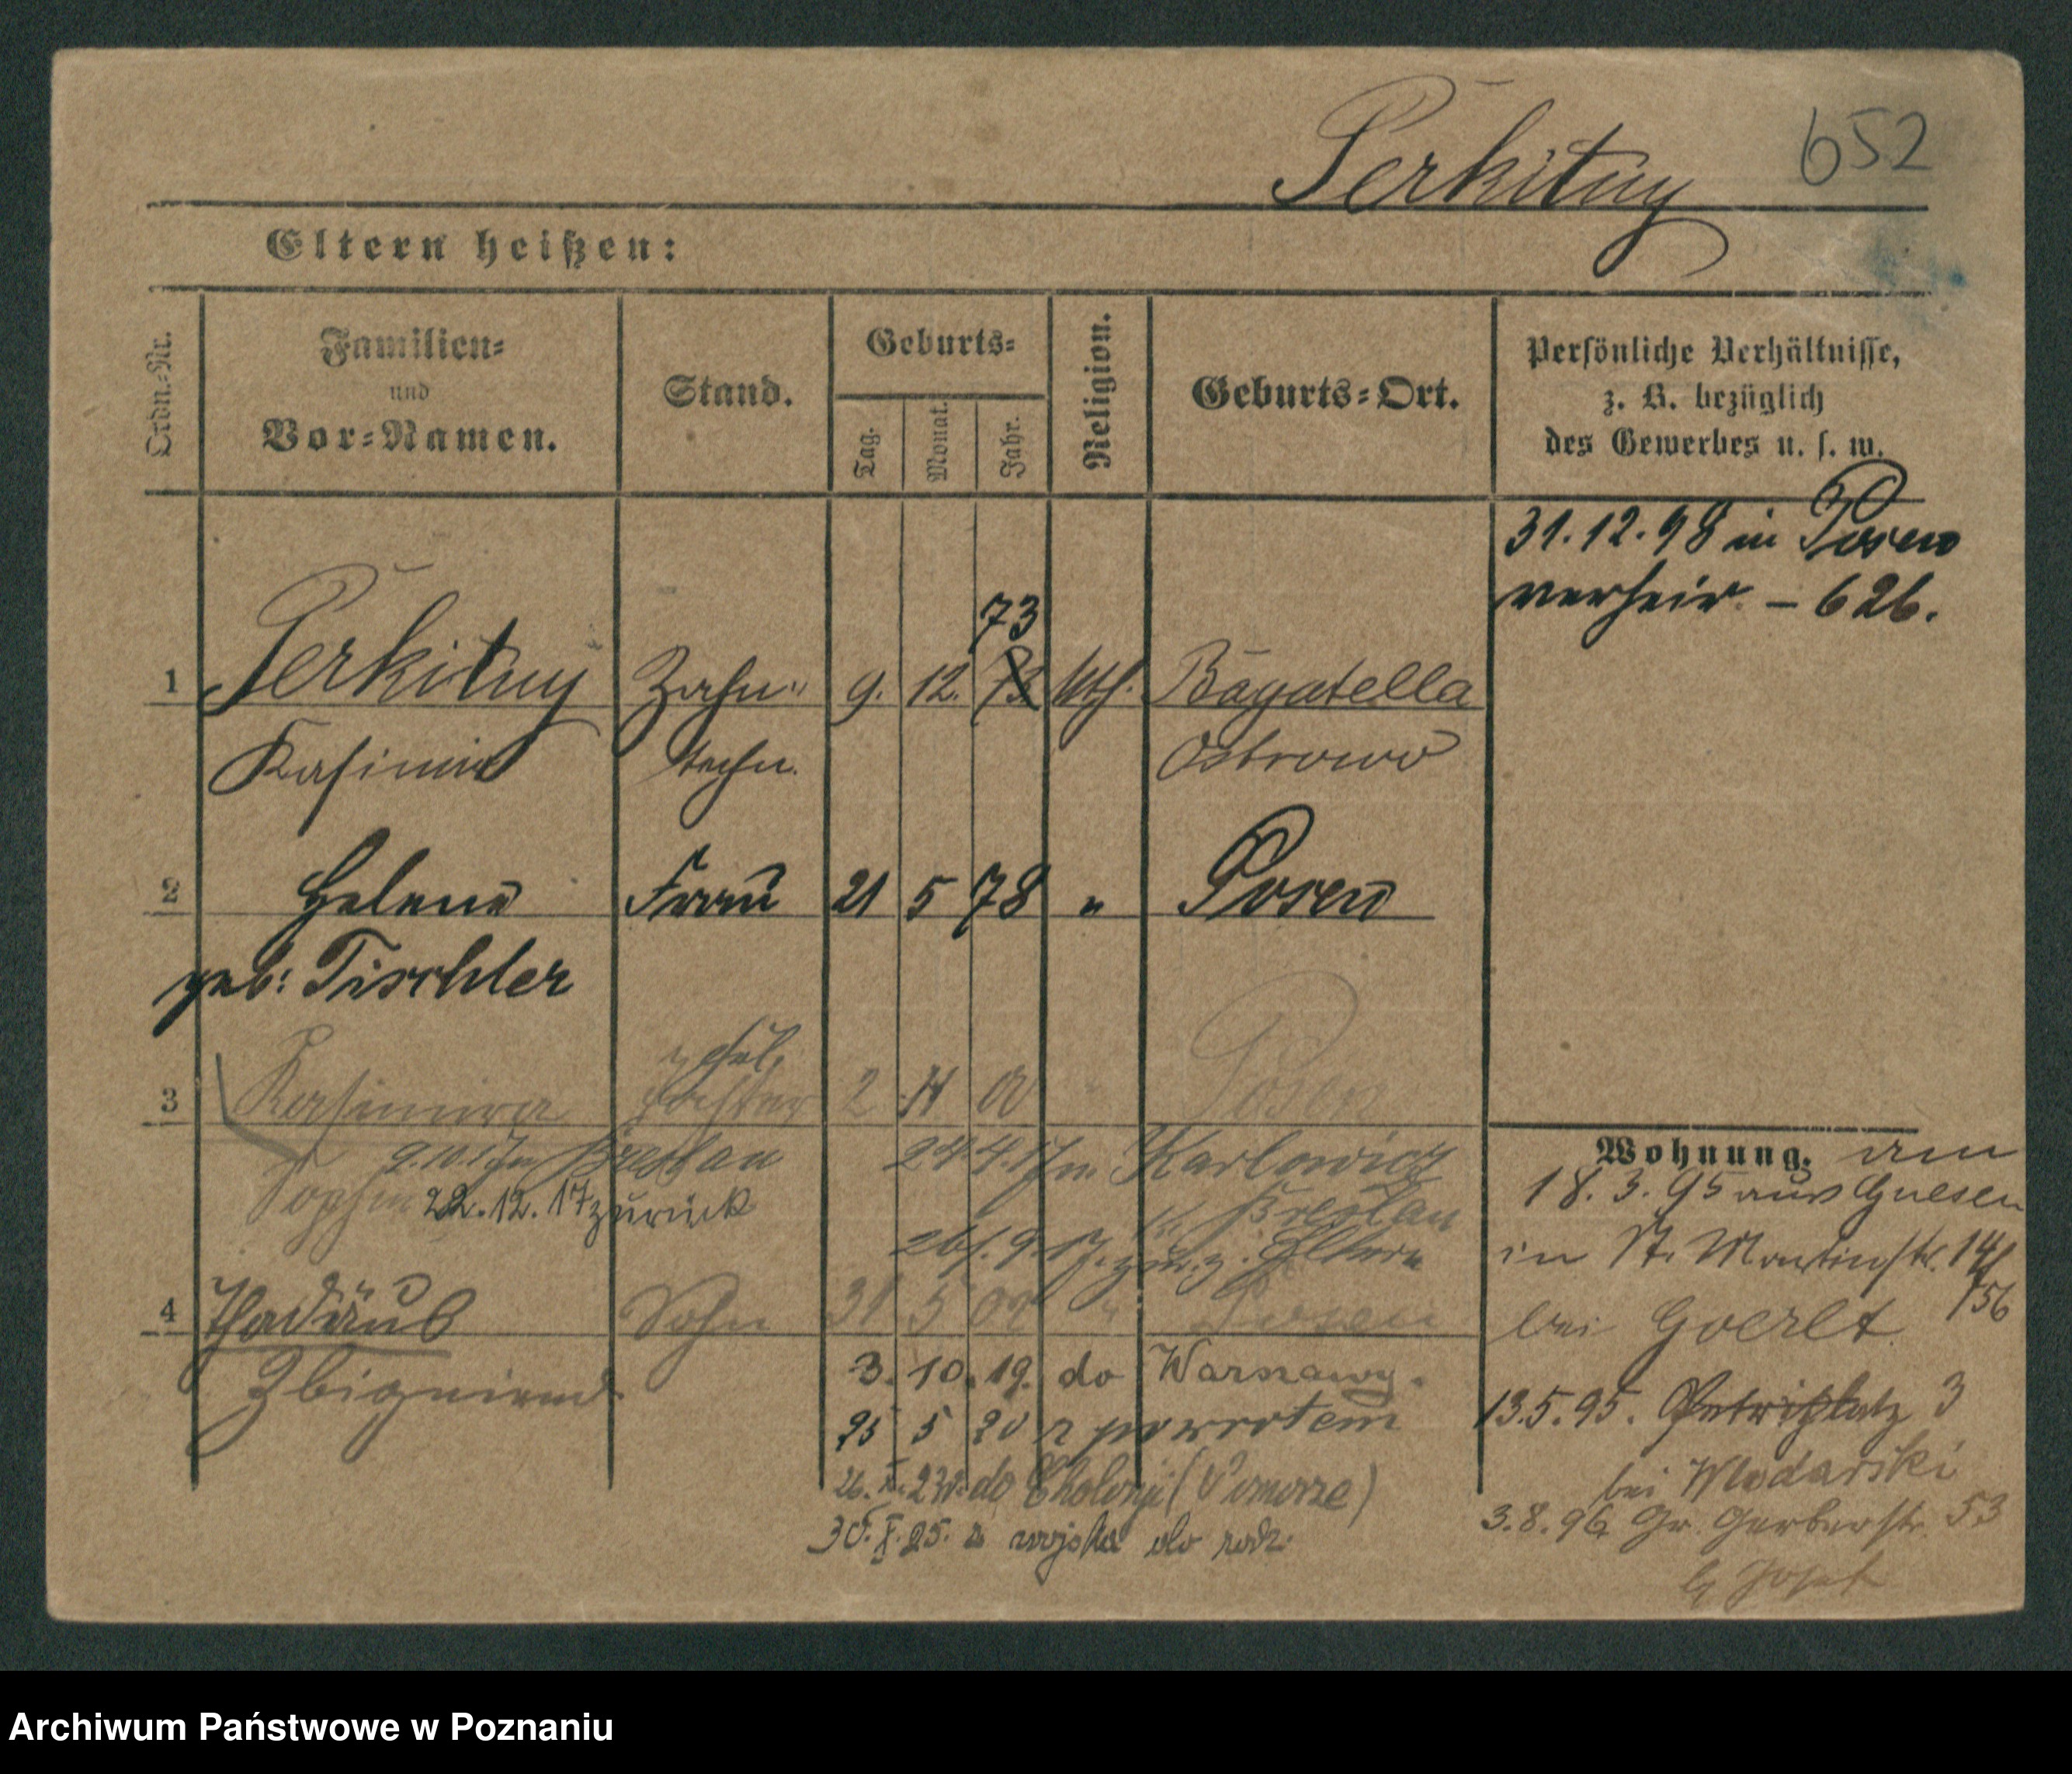 Perkitny 652
Eltern heißen:
Ordn.-Nr.
Familien-
und
Vor-Namen.
Stand.
Geburts-
Tag.
Monat.
Jahr.
Religion.
Geburts-Ort.
Persönliche Verhältnisse,
z. B. bezüglich
des Gewerbes u. s. w.
31.12.98 in Posen
verheir. – 626.
73
1 Perkitny Zahn- 9. 12. 73 kth. Bagatella
Kasimir techn. Ostrowo
2 Helene Frau 21 5 78 " Posen
geb: Tischler
3 Kasimira Tochter 2 11 00 Posen
9.10.17 n Breslau 24.4.17 n. Karlowicz
Sophie 22.12.17 zurück Breslau
26.9.17. zur. z. Eltern
4 Thadäus Sohn 31 5 02 " Posen
Zbigniew
3. 10. 19. do Warszawy.
25 5 20 z powrotem
do (Pomorze)
30. X. 25. z wojska do rodz.
Wohnung. am
18.3.95 aus Gnesen
in St. Martinstr. 14/
/56
bei Goerlt
13.5.95. Petriplatz 3
bei Wlodarski
3.8.96 Gr. Gerberstr. 53
Archiwum Państwowe w Poznaniu